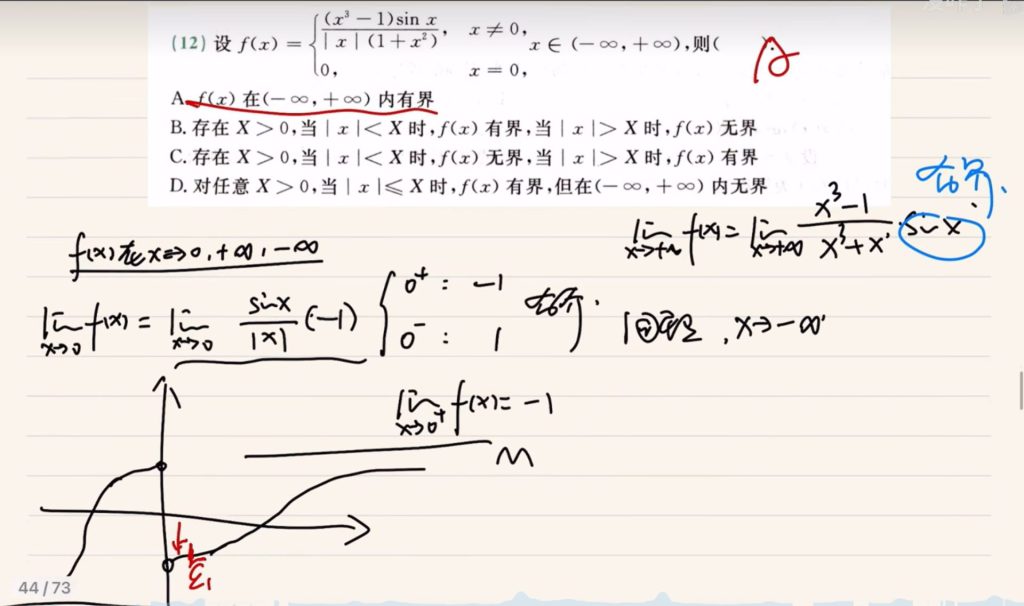 (12) 设 f(x) = { (x³ − 1)sin x / | x | (1 + x²), x ≠ 0, x ∈ (− ∞, + ∞),则(
0, x = 0,
A
A. f(x) 在(− ∞, + ∞) 内有界
B. 存在 X > 0,当 | x | < X 时, f(x) 有界,当 | x | > X 时, f(x) 无界
C. 存在 X > 0,当 | x | < X 时, f(x) 无界,当 | x | > X 时, f(x) 有界
D. 对任意 X > 0,当 | x | ⩽ X 时, f(x) 有界,但在(− ∞, + ∞) 内无界
有界.
lim x→+∞ f(x) = lim x→+∞ x³−1 / x³+x · sin x
f(x)在x→0, +∞, −∞
lim x→0 f(x) = lim x→0 sinx / |x| (−1) { 0⁺ : −1
0⁻ : 1
有界.
同理, x→−∞
lim x→0⁺ f(x) = −1
M
ε₁
44 / 73